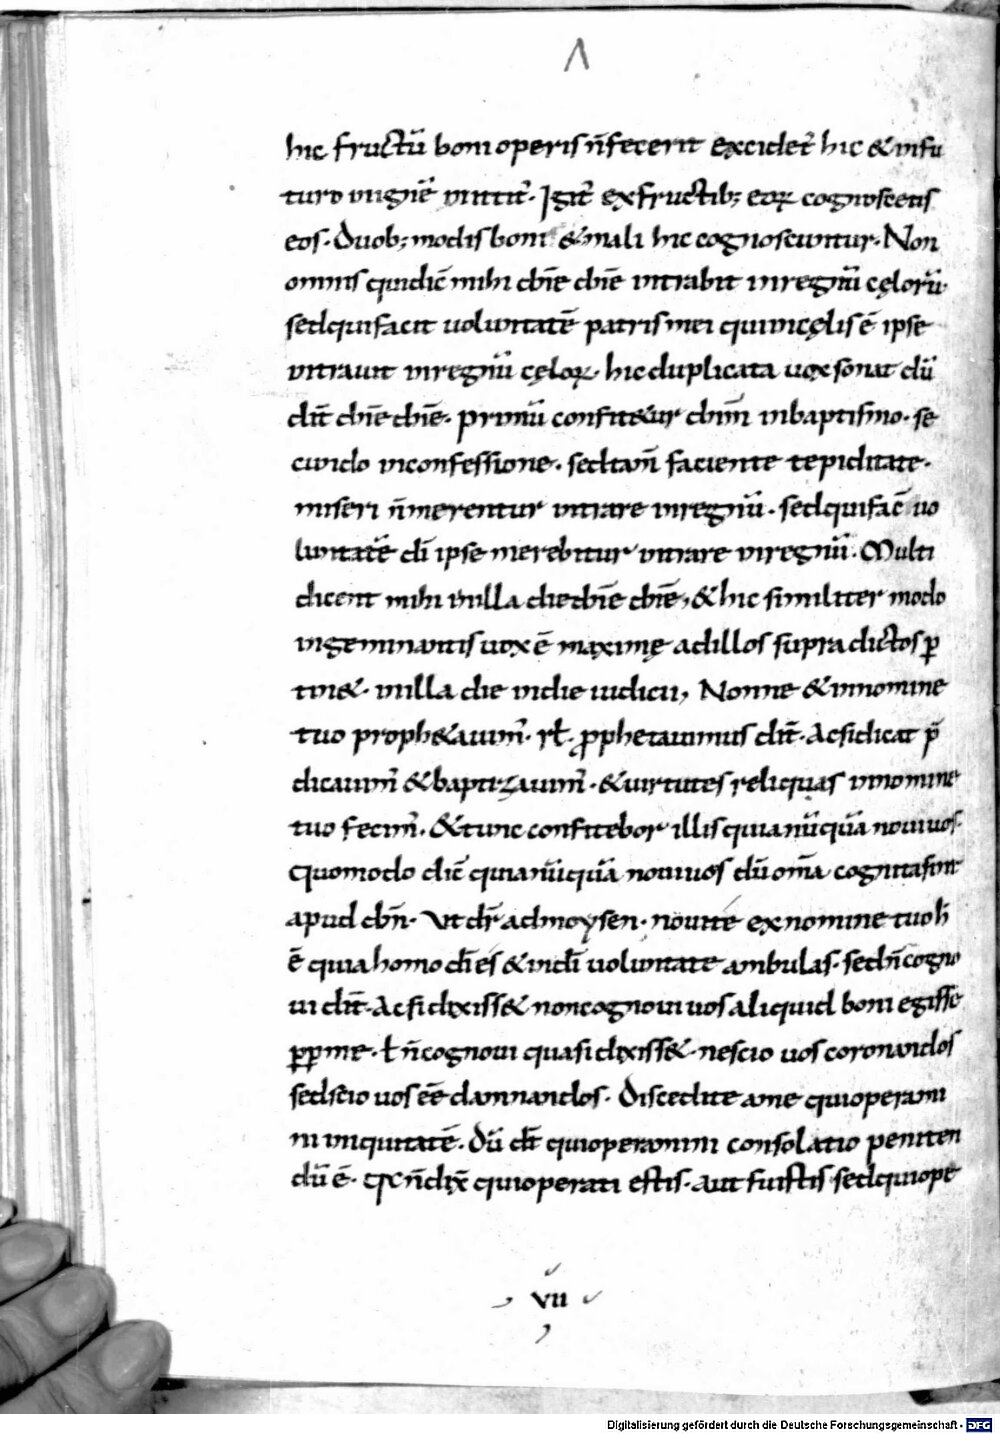 Λ
hic fructū boni operis n̄fecerit excidet̄ hic &infu
turo inignē mittit̄. Igit̄ exfructib; eoꝝ cognoscetis
eos. Duob; modis boni &mali hic cognoscuntur. Non
omnis quidic̄ mihi dn̄e dn̄e intrabit inregnū cęlorū
sedquifacit uoluntatē patris mei quiincęlis ē ipse
intrauit inregnū cęloꝝ. hic duplicata uox sonat dū
dic̄t dn̄e dn̄e. primū confit&ur dn̄m inbaptismo. se
cundo inconfessione. sedtam̄ faciente tepiditate.
miseri n̄merentur intrare inregnū. sedquifac̄ uo
luntatē di̅ ipse merebitur intrare inregnū. Multi
dicent mihi inilla diedn̄e dn̄e, & hic similiter modo
ingeminantis uox ē maximę adillos supradictos ꝑ
tin&. inilla die indie iudicii, Nonne &innomine
tuo proph&auim̄. ꝓphetauimus dic̄t. Acsidicat p̄
dicauim̄ &baptizauim̄. &uirtutes reliquas innomine
tuo fecim̄. &tunc confitebor illis quianūquā noui uos.
Quomodo dic̄ quianūquā noui uos dū om̄a cognitasint
apud dn̄m. Ut dr̄ admoysen. nouite exnomine tuo h̄
ē quia homo di̅ es &indi̅ uoluntate ambulas. sedn̄cogno
ui dic̄t. Acsi dixiss& noncognoui uos aliquid boni egisse
ꝓpt̄ me. ł n̄cognoui quasi dixiss&. nescio uos coronandos
sedscio uos eē damnandos. Discedite ame quioperami
ni iniquitatē. Dū dic̄t quioperamini consolatio peniten
dū ē. Qn̄dix̄ quioperati estis. aut fuistis sedquiope
VII
Digitalisierung gefördert durch die Deutsche Forschungsgemeinschaft - DFG